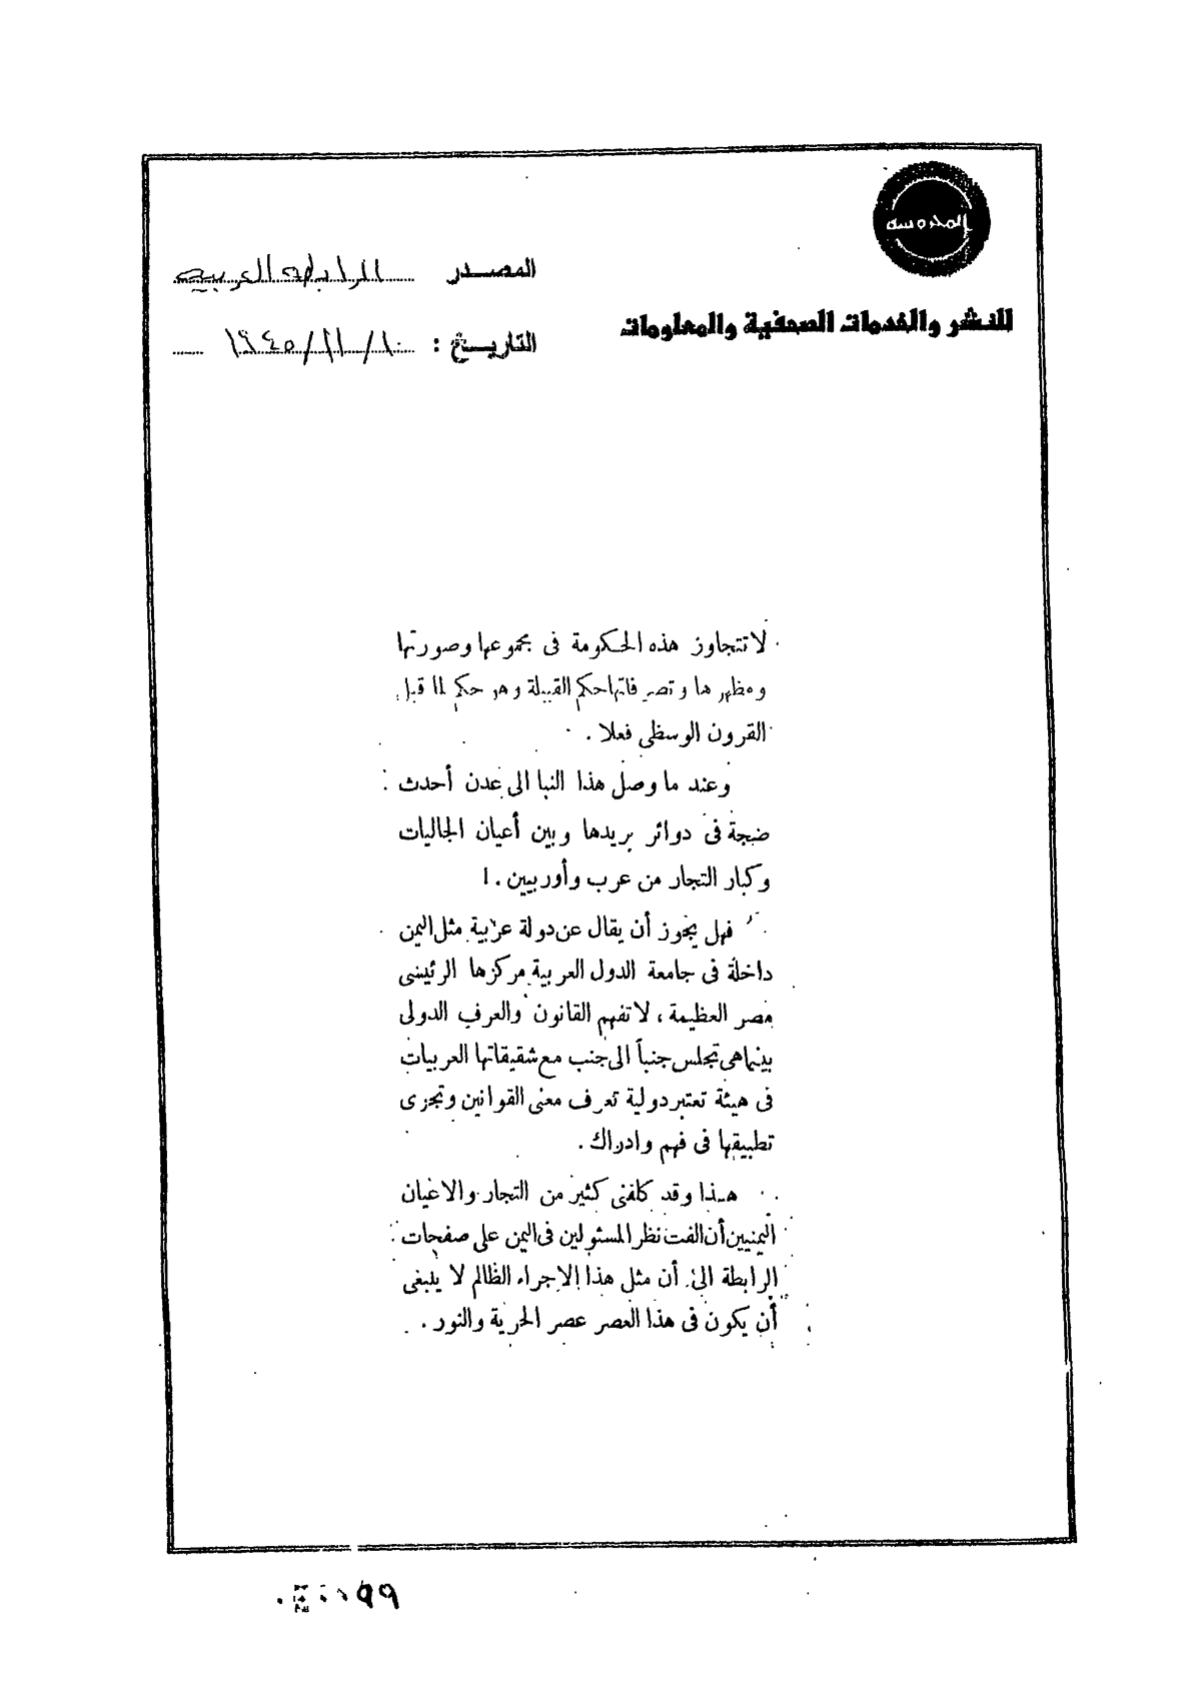 المحروسة
للنشر والخدمات الصحفية والمعلومات
المصدر الرابطه العربيه
التاريخ : ١٠/١١/١٩٤٥
لا تتجاوز هذه الحكومة فى مجموعها وصورتها
ومظهرها وتصرفاتها حكم القبيلة وهو حكم لما قبل
القرون الوسطى فعلا .
وعند ما وصل هذا النبا الى عدن أحدث
ضجة فى دوائر بريدها وبين أعيان الجاليات
وكبار التجار من عرب وأوربيين . ا
فهل يجوز أن يقال عن دولة عربية مثل اليمن
داخلة فى جامعة الدول العربية مركزها الرئيسى
مصر العظيمة ، لا تفهم القانون والعرف الدولى
بينما هى تجلس جنباً الى جنب مع شقيقاتها العربيات
فى هيئة تعتبر دولية تعرف معنى القوانين وتجرى
تطبيقها فى فهم وادراك .
هذا وقد كلفنى كثير من التجار والاعيان
اليمنيين أن الفت نظر المسئولين فى اليمن على صفحات
الرابطة الى أن مثل هذا الاجراء الظالم لا ينبغى
أن يكون فى هذا العصر عصر الحرية والنور .